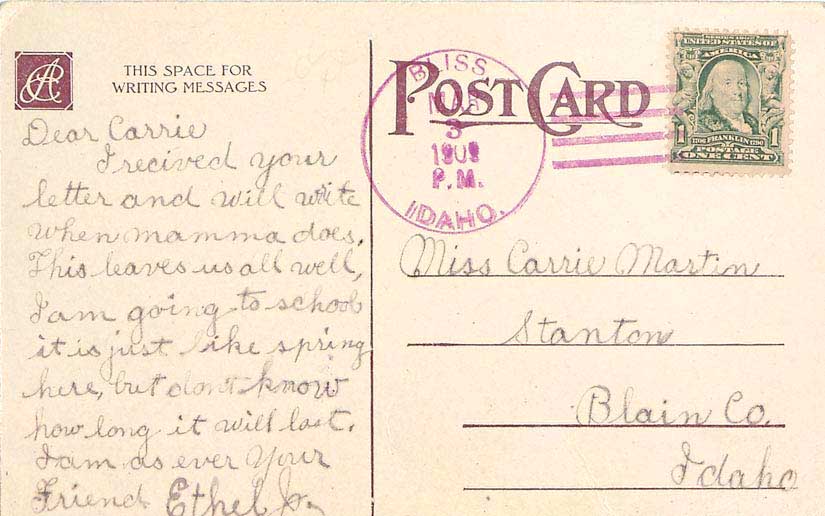 THIS SPACE FOR
WRITING MESSAGES
POST CARD
BLISS
MAR
3
1909
P.M.
IDAHO.
UNITED STATES OF
AMERICA
1 1706 FRANKLIN 1790 1
POSTAGE
ONE CENT
Dear Carrie
I recived your
letter and will write
when mamma does.
This leaves us all well,
I am going to school
it is just like spring
here, but dont know
how long it will last.
I am as ever Your
Friend Ethel
Miss Carrie Martin
Stanton
Blain Co.
Idaho